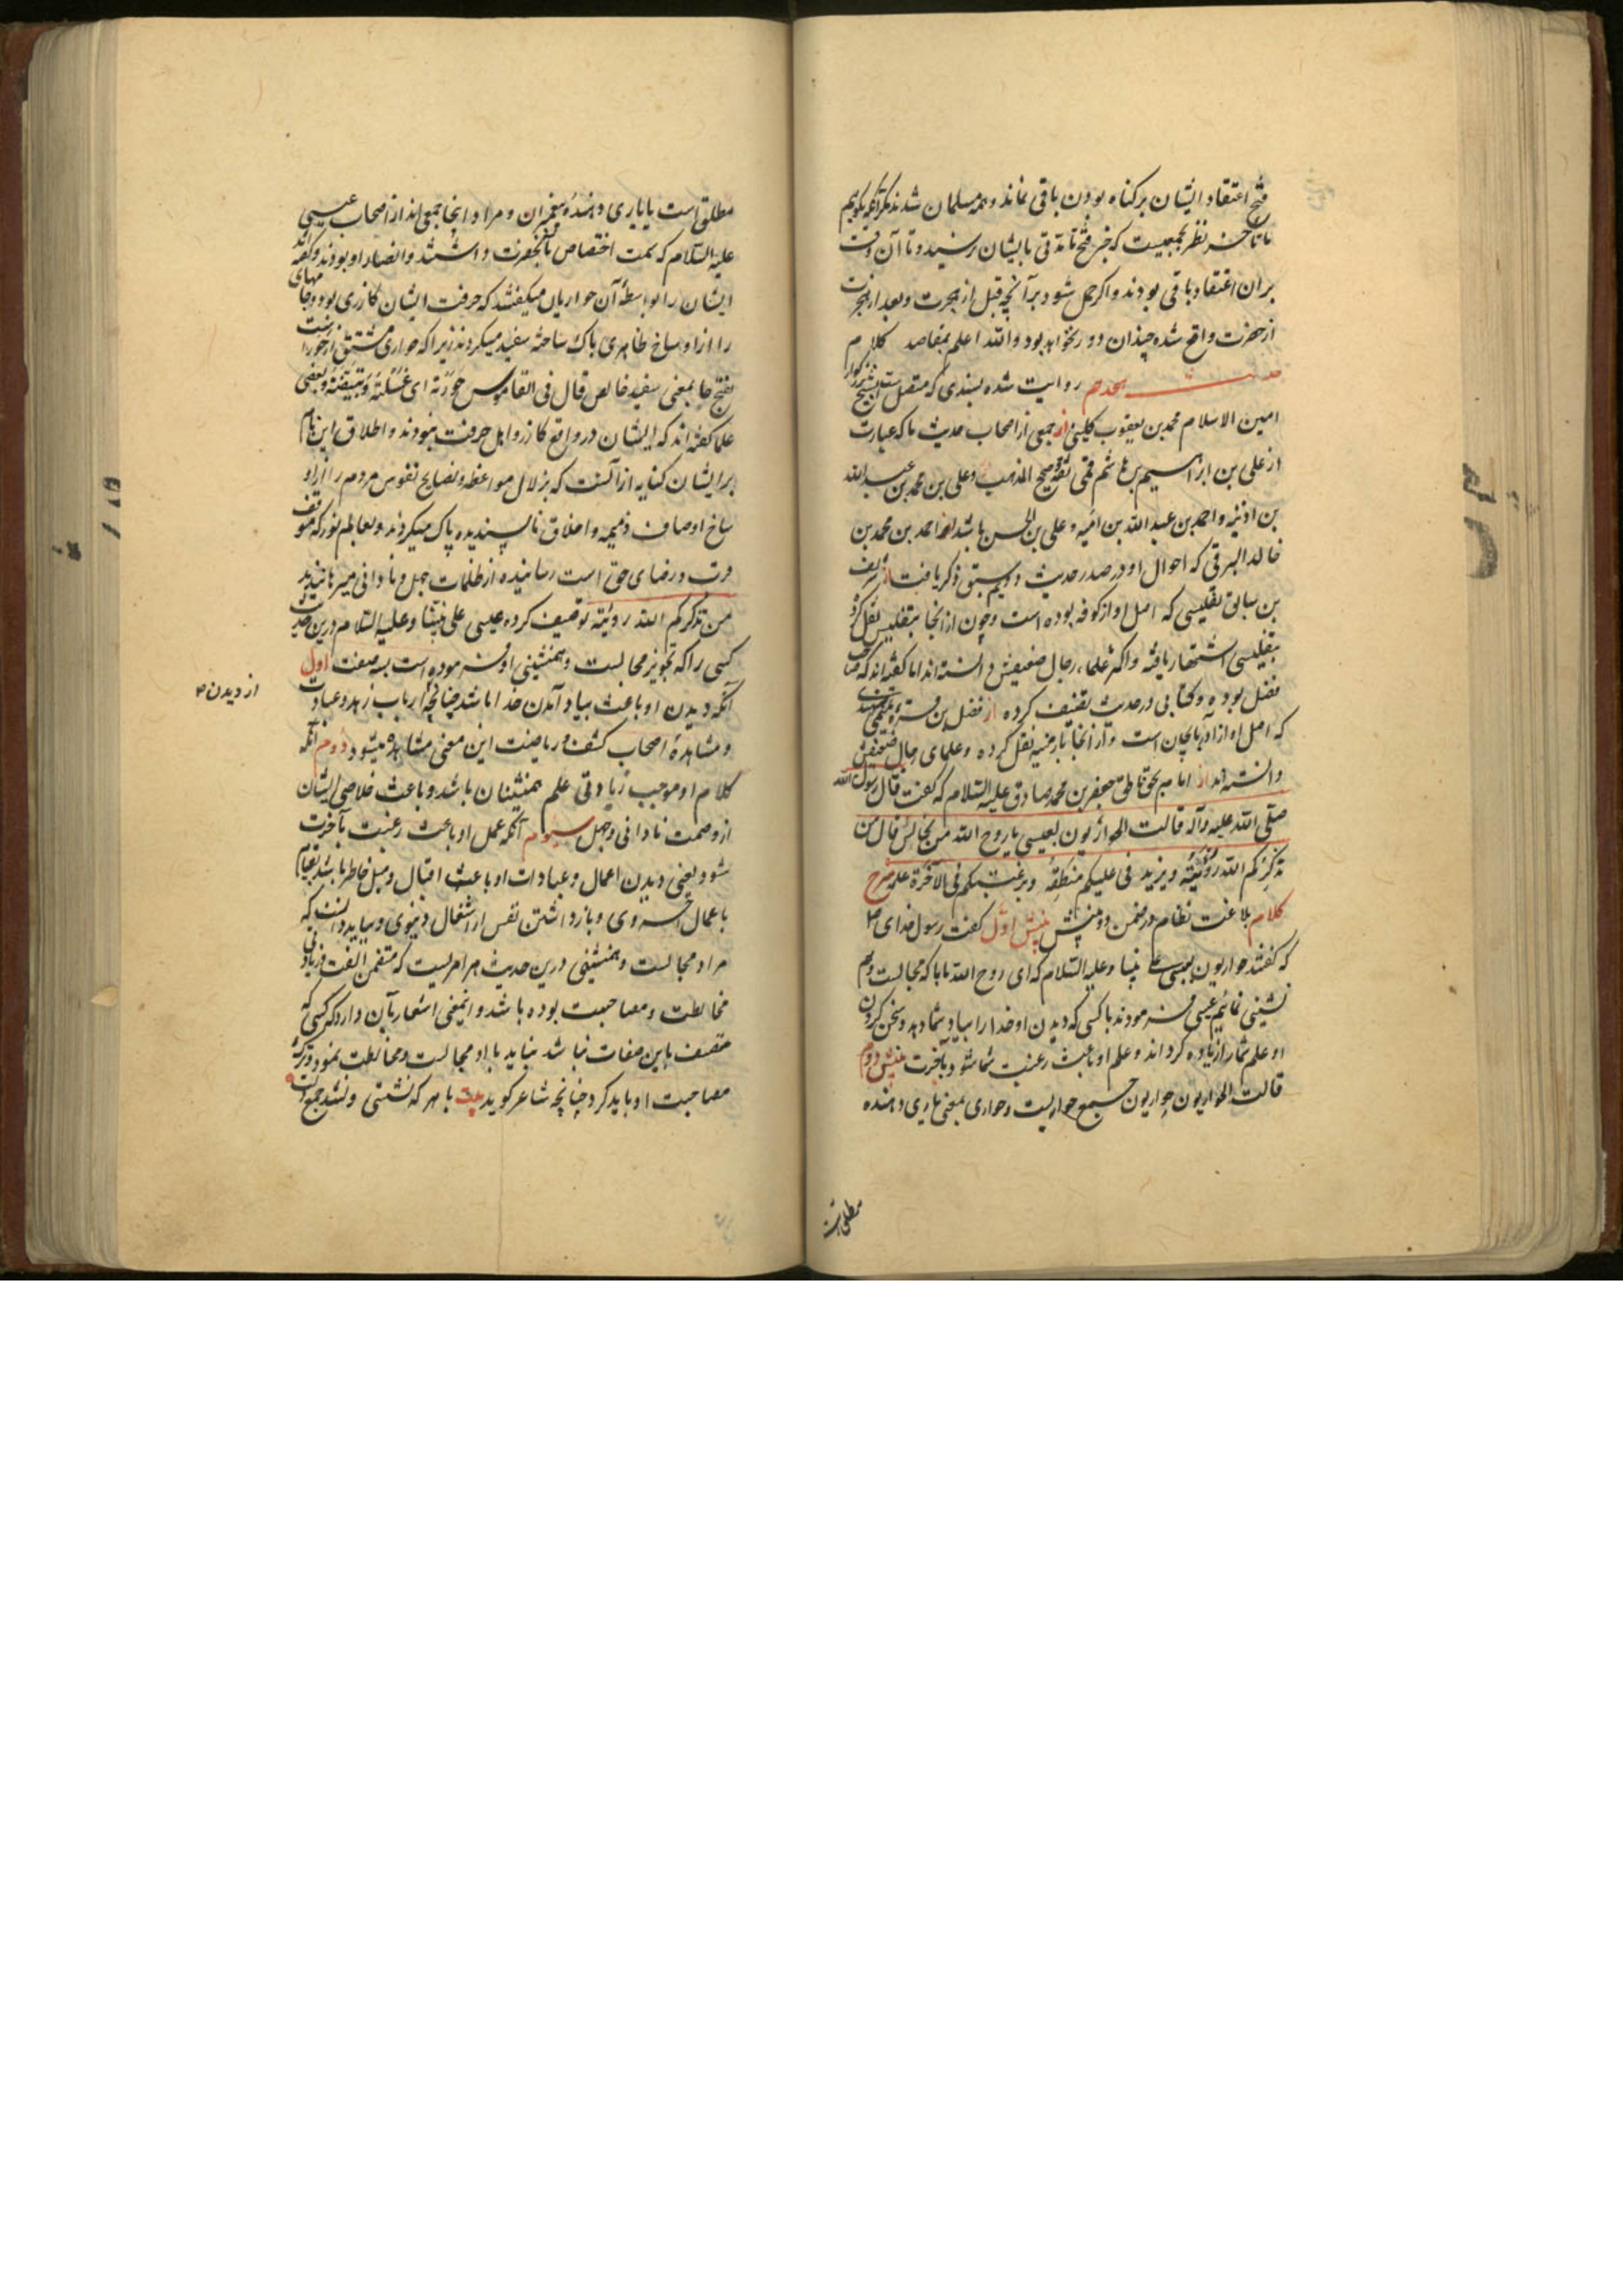 فتح اعتقاد ایشان بر کناه بودن باقی نماند و همه مسلمان شدند مکر آنکه بکوییم
تا تاخر نظر بجمعیست که خبر فتح تا مدتی بایشان نرسید و تا آن وقت
بران اعتقاد باقی بودند و اکر حمل شود بر آنچه قبل از هجرت و بعد از هجرت
از حضرت واقع شده چندان دور نخواهد بود والله اعلم بمقاصد کلام
حدیث هجدهم روایت شده بسندی که متصل است بشیخ بزرکوار
امین الاسلام محمد بن یعقوب کلینی از جمعی از اصحاب حدیث ما که عبارت
از علی بن ابراهیم بن هاشم قمی ثقه صحیح المذهب و علی بن محمد بن عبدالله
بن اذینه و احمد بن عبدالله بن امیه و علی بن الحسن باشد از احمد بن محمد بن
خالد البرقی که احوال او در صدر حدیث دویم سبق ذکر یافت از شریف
بن سابق تفلیسی که اصل او از کوفه بوده است و چون از انجا بتفلیس نقل کرد
بتفلیسی اشتهار یافته و اکثر علماء رجال ضعیفش دانسته اند اما کفته اند که صاحب
فضل بوده و کتابی در حدیث تصنیف کرده از فضل بن قره تمیمی سهندی
که اصل او از آذربایجان است و از انجا بارمنیه نقل کرده و علمای رجال ضعیفش
دانسته اند از امام بحق ناطق جعفر بن محمد صادق علیه السلام که کفت قال رسول الله
صلی الله علیه وآله قالت الحواریون لعیسی یا روح الله من نجالس قال من
یذکرکم الله رؤیته و یزید فی علمکم منطقه و یرغبکم فی الآخرة عمله شرح
کلام بلاغت نظام در ضمن دو بینش بینش اول کفت رسول خدای ص
که کفتند حواریون بعیسی علی نبینا و علیه السلام که ای روح الله ما با که مجالست و هم
نشینی نمائیم عیسی فرمودند با کسی که دیدن او خدا را بیاد شما دهد و سخن کردن
او علم شما را زیاده کرداند و علم او باعث رغبت شما شود بآخرت بینش دوم
قالت الحواریون حواریون جمع حواریست و حواری بمعنی یاری دهنده
مطلق است
مطلق است یا یاری دهنده پیغمبران و مراد اینجا جمعی اند از اصحاب عیسی
علیه السلام که سمت اختصاص بآنحضرت داشتند و انصار او بودند و کفته اند
ایشان را بواسطه آن حواریان میکفتند که حرفت ایشان کازری بود و جامهای
را از اوساخ ظاهری پاک ساخته سفید میکردند زیرا که حواری مشتق از حور است
بفتح حا بمعنی سفید خالص قال فی القاموس حورته ای غسلته و بیضته و بعضی
علما کفته اند که ایشان در واقع کازر و اهل حرفت نبودند و اطلاق این نام
بر ایشان کنایه از آنست که بزلال مواعظ و نصایح نفوس مردم را از او
ساخ اوصاف ذمیمه و اخلاق ناپسندیده پاک میکردند و بعالم نور که موقف
قرب و رضای حق است رسانیده از ظلمات جهل و نادانی میرهانیدند
من یذکرکم الله رویته توصیف کرده عیسی علی نبینا و علیه السلام درین حدیث
کسی را که تجویز مجالست و همنشینی او فرموده است بسه صفت اول
آنکه دیدن او باعث بیاد آمدن خدا باشد چنانچه ارباب زهد و عبادت
از دیدن
و مشاهدۀ اصحاب کشف و ریاضت این معنی مشاهده میشود دوم آنکه
کلام او موجب زیادتی علم همنشینان باشد و باعث خلاصی ایشان
از وصمت نادانی و جهل سیوم آنکه عمل او باعث رغبت بآخرت
شود یعنی دیدن اعمال و عبادات او باعث اقبال و میل خاطرها باشد بقیام
باعمال اخروی و باز داشتن نفس از اشغال دنیوی و بباید دانست که
مراد مجالست و همنشینی درین حدیث هر امریست که متضمن الفت و زیادتی
مخالطت و مصاحبت بوده باشد و اینمعنی اشعار بآن دارد که کسی که
متصف باین صفات نباشد نباید با او مجالست و مخالطت نمود و ترک
مصاحبت او باید کرد چنانچه شاعر کوید بیت با هر که نشستی و نشد جمع دلت